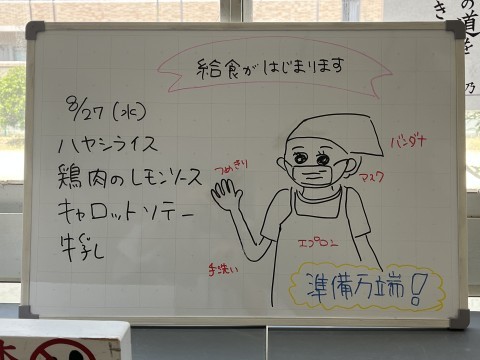 給食がはじまります
8/27(水)
ハヤシライス
鶏肉のレモンソース
キャロットソテー
牛乳
バンダナ
マスク
つめきり
エプロン
手洗い
準備万端!
の道を
き
乃